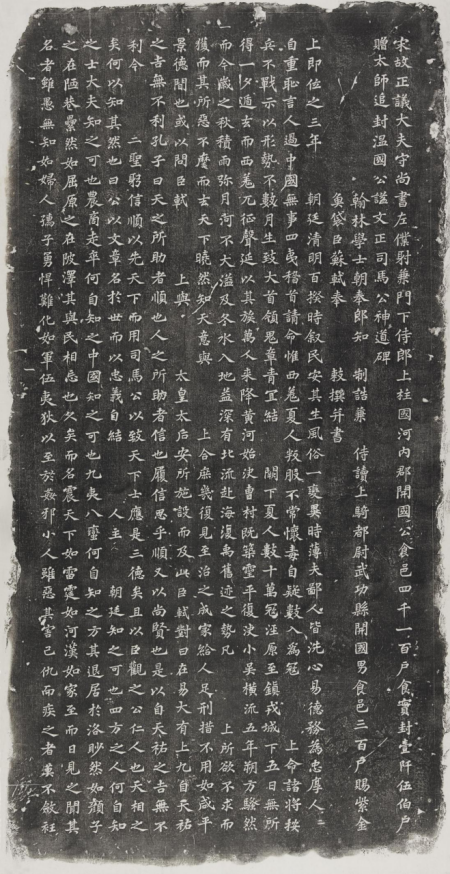 宋故正議大夫守尚書左僕射兼門下侍郎上柱國河內郡開國公食邑四千一百戶食實封壹阡伍伯戶
贈太師追封溫國公謚文正司馬公神道碑
翰林學士朝奉郎知 制誥兼 侍讀上騎都尉武功縣開國男食邑三百戶賜紫金
魚袋臣蘇軾奉 敕撰并書
上即位之三年 朝廷清明百揆時叙民安其生風俗一變異時薄夫鄙人皆洗心易德務為忠厚人人
自重恥言人過中國無事四夷稽首請命惟西羌夏人叛服不常懷毒自疑數入為寇 上命諸將按
兵不戰示以形勢不數月生致大首領鬼章青宜結 闕下夏人數十萬寇涇原至鎮戎城下五日無所
得一夕遁去而西羌兀征聲延以其族萬人來降黃河始決曹村既築靈平復決小吳橫流五年朔方騷然
而今歲之秋積雨弥月河不大溢及冬水入地益深有北流赴海復禹舊迹之勢凡 上所欲不求而
獲而其所惡不麾而去天下曉然知天意與 上合庶幾復見至治之成家給人足刑措不用如咸平
景德間也或以問臣軾 上與 太皇太后安所施設而及此臣軾對曰在易大有上九自天祐
之吉無不利孔子曰天之所助者順也人之所助者信也履信思乎順又以尚賢也是以自天祐之吉無不
利今 二聖躬信順以先天下而用司馬公以致天下士應是三德矣且以臣觀之公仁人也天相之
矣何以知其然也曰公以文章名於世而以忠義自結 人主 朝廷知之可也四方之人何自知
之士大夫知之可也農商走卒何自知之中國知之可也九夷八蠻何自知之方其退居於洛眇然如顏子
之在陋巷纍然如屈原之在陂澤其與民相忘也久矣而名震天下如雷霆如河漢如家至而日見之聞其
名者雖愚無知如婦人孺子勇悍難化如軍伍夷狄以至於姦邪小人雖惡其害己仇而疾之者莫不斂衽